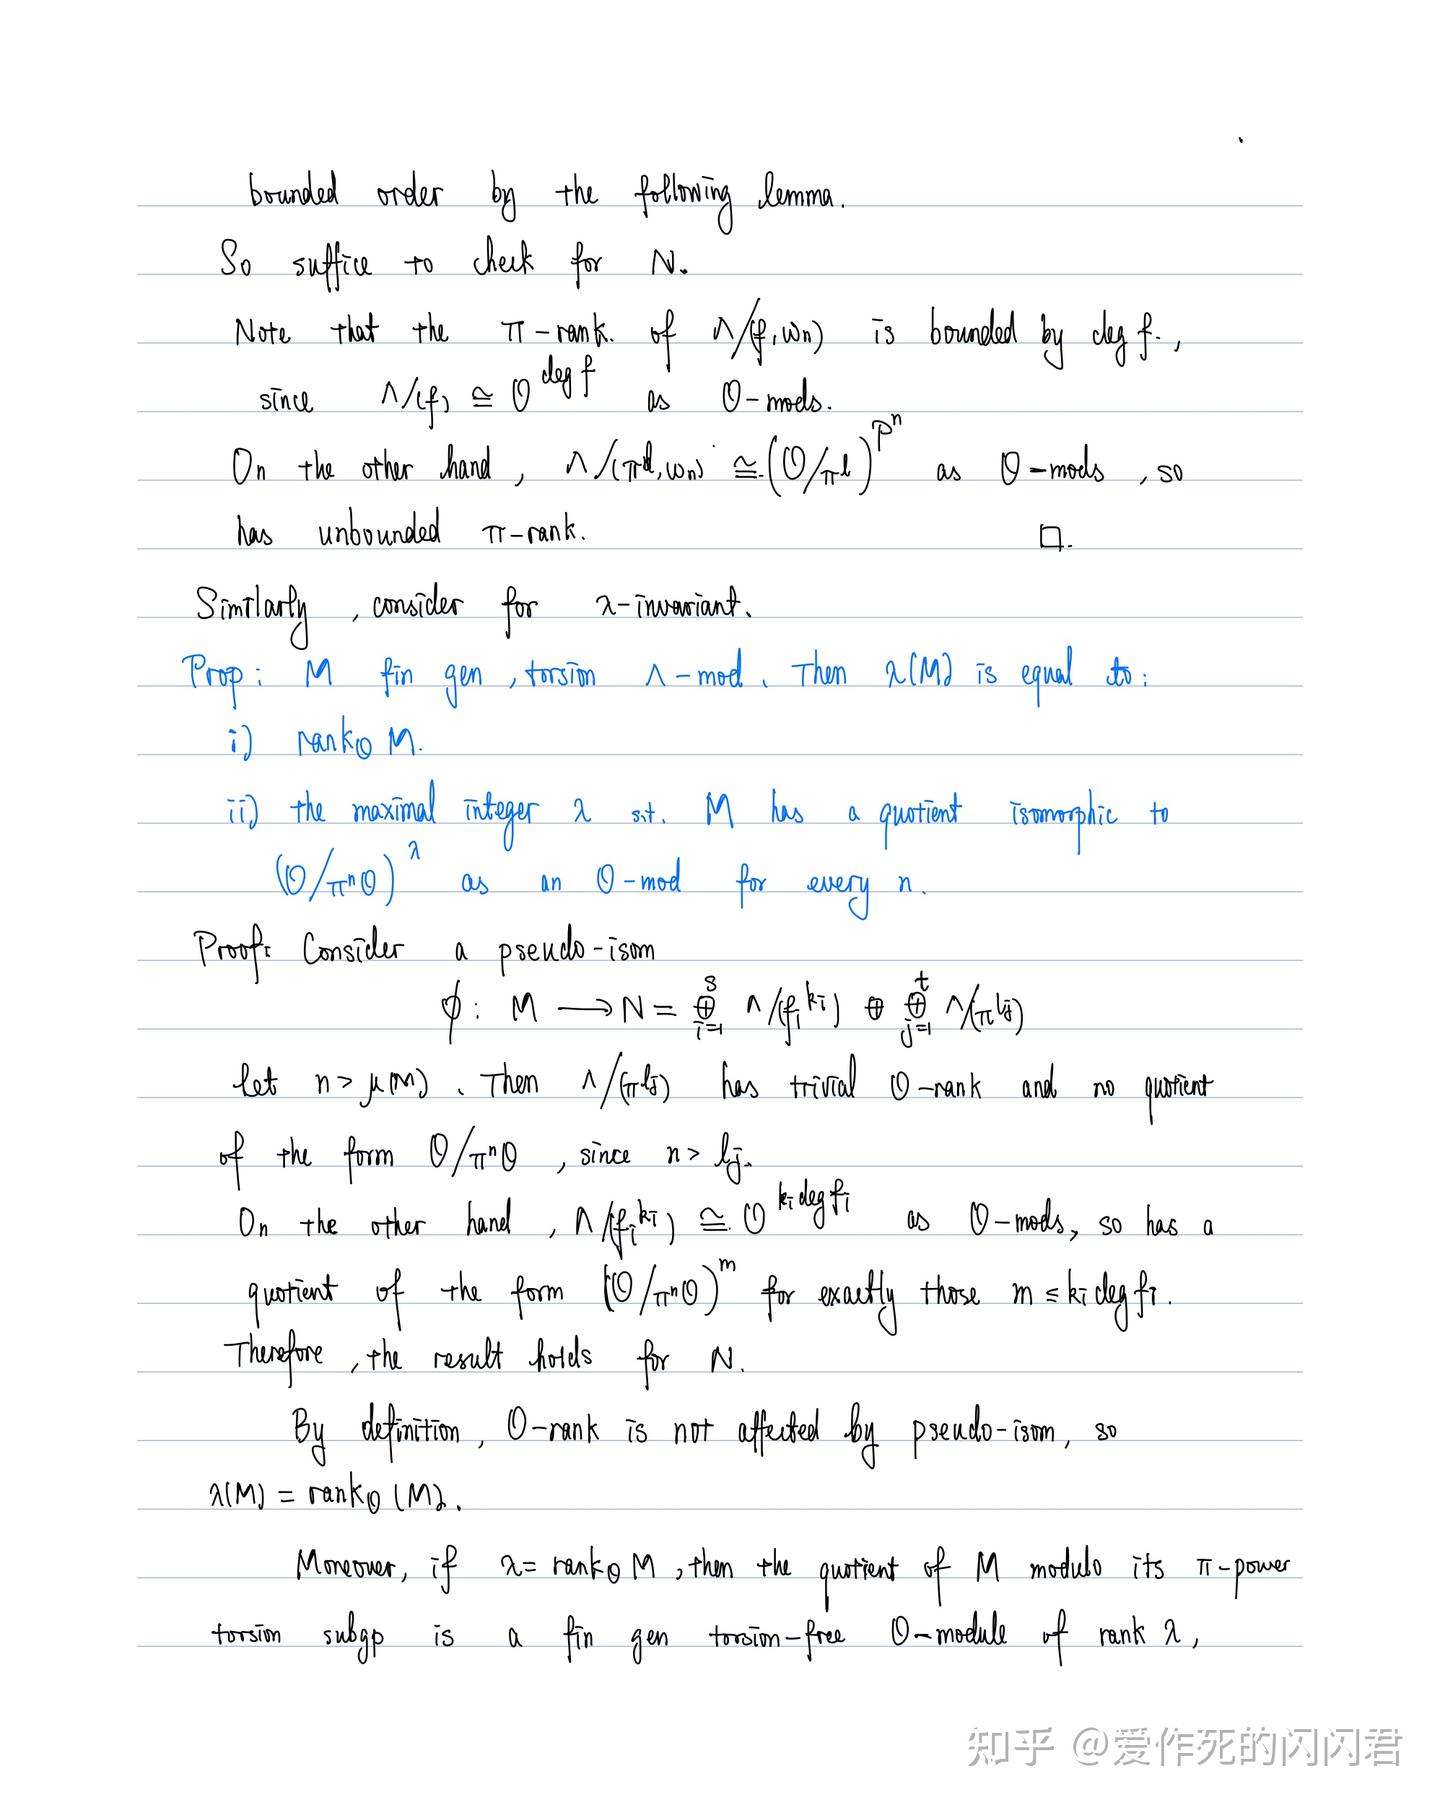 bounded order by the following lemma.
So suffice to check for N.
Note that the π-rank. of Λ/(f, ωn) is bounded by deg f.,
since Λ/(f) ≅ O^{deg f} as O-mods.
On the other hand, Λ/(π^l, ωn) ≅ (O/π^l)^{p^n} as O-mods, so
has unbounded π-rank. □.
Similarly, consider for λ-invariant.
Prop: M fin gen, torsion Λ-mod. Then λ(M) is equal to:
i) rank_O M.
ii) the maximal integer λ s.t. M has a quotient isomorphic to
(O/π^n O)^λ as an O-mod for every n.
Proof: Consider a pseudo-isom
ϕ: M → N = ⊕_{i=1}^{s} Λ/(f_i^{k_i}) ⊕ ⊕_{j=1}^{t} Λ/(π^{l_j})
Let n > μ(M). Then Λ/(π^{l_j}) has trivial O-rank and no quotient
of the form O/π^n O, since n > l_j.
On the other hand, Λ/(f_i^{k_i}) ≅ O^{k_i deg f_i} as O-mods, so has a
quotient of the form (O/π^n O)^m for exactly those m ≤ k_i deg f_i.
Therefore, the result holds for N.
By definition, O-rank is not affected by pseudo-isom, so
λ(M) = rank_O (M).
Moreover, if λ = rank_O M, then the quotient of M modulo its π-power
torsion subgp is a fin gen torsion-free O-module of rank λ,
知乎 @爱作死的闪闪君